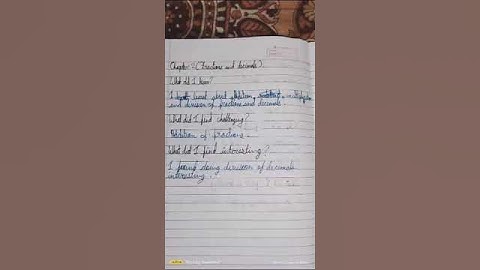 Chapter-2 (Fractions and decimals).
What did I learn?
I learnt about addition, subtract, multiplication
and division of fractions and decimals.
What did I find challenging?
Addition of fractions.
What did I find interesting?
I found doing division of decimals
interesting.